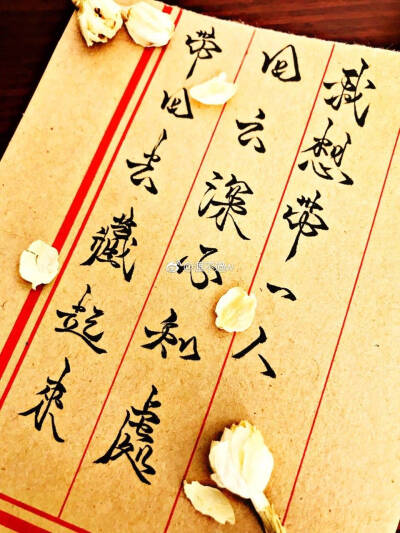 我想帶一人
回云深不知處
帶回去藏起來